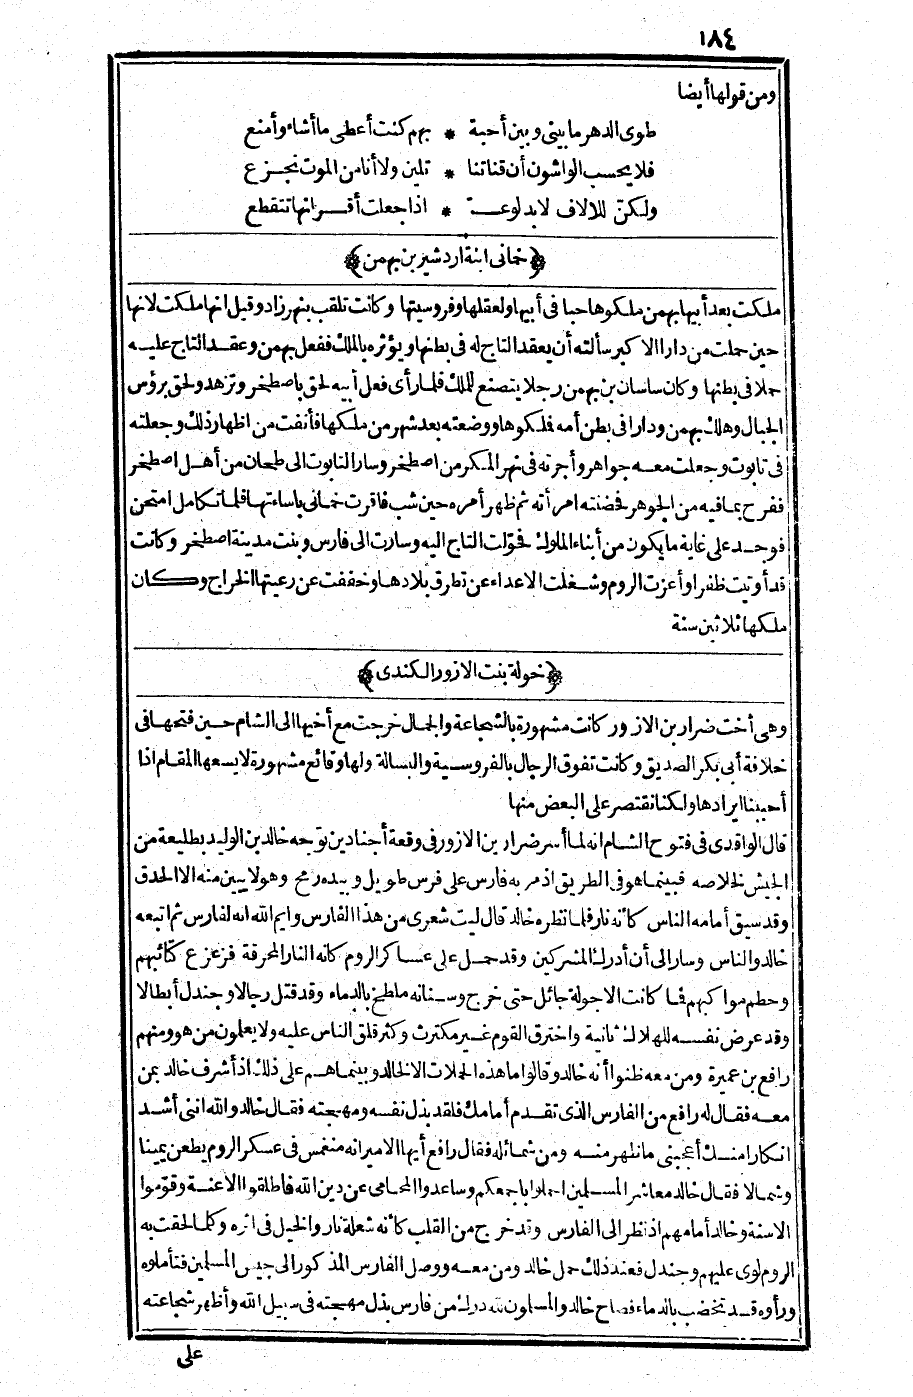 ١٨٤
ومن قولها أيضا
طوى الدهر ما بيني وبين أحبة * بهم كنت أعطى ما أشاء وأمنع
فلا يحسب الواشون أن قناتنا * تلين ولا أنا من الموت نجزع
ولكنّ للالاف لابد لوعـــة * اذا جعلت أقـرانها تتقطع
﴿خمانى ابنة اردشير بن بهمن﴾
ملكت بعد أبيها بهمن ملكوها حبا فى أبيها ولعقلها وفروسيتها وكانت تلقب بنهرزاد وقيل انها ملكت لانها
حين حملت من دارا الاكبر سألته أن يعقد التاج له فى بطنها ويؤثره بالملك ففعل بهمن وعقد التاج عليه
حملا فى بطنها وكان ساسان بن بهمن رجلا يتصنع للملك فلما رأى فعل أبيه لحق باصطخر وتزهد ولحق برؤس
الجبال وهلك بهمن ودارا فى بطن أمه فملكوها ووضعته بعد شهر من ملكها فأنفت من اظهار ذلك وجعلته
فى تابوت وجعلت معه جواهر وأجرته فى نهر الكر من اصطخر وسار التابوت الى طحان من أهل اصطخر
ففرح بما فيه من الجوهر فحضنته امرأته ثم ظهر أمره حين شب فاقرت خمانى باساءتها فلما تكامل امتحن
فوجد على غاية ما يكون من أبناء الملوك فحوّلت التاج اليه وسارت الى فارس وبنت مدينة اصطخر وكانت
قد أوتيت ظفرا وأعزت الروم وشغلت الاعداء عن تطرق بلادها وخففت عن رعيتها الخراج وكان
ملكها ثلاثين سنة
﴿خولة بنت الازور الكندى﴾
وهى أخت ضرار بن الازور كانت مشهورة بالشجاعة والجمال خرجت مع أخيها الى الشام حين فتحها فى
خلافة أبى بكر الصديق وكانت تفوق الرجال بالفروسية والبسالة ولها وقائع مشهورة لا يسعها المقام اذا
أحببنا ايرادها ولكنا نقتصر على البعض منها
قال الواقدى فى فتوح الشام انه لما أسر ضرار بن الازور فى وقعة أجنادين توجه خالد بن الوليد بطليعة من
الجيش لخلاصه فبينما هو فى الطريق اذ مر به فارس على فرس طويل وبيده رمح وهو لا يبين منه الا الحدق
وقد سبق أمامه الناس كأنه نار فلما نظره خالد قال ليت شعرى من هذا الفارس وايم الله انه لفارس ثم اتبعه
خالد والناس وسار الى أن أدرك المشركين وقد حمل على عساكر الروم كأنه النار المحرقة فزعزع كتائبهم
وحطم مواكبهم فما كانت الا جولة جائل حتى خرج وسنانه ملطخ بالدماء وقد قتل رجالا وجندل أبطالا
وقد عرض نفسه للهلاك ثانية واخترق القوم غير مكترث وكثر قلق الناس عليه ولا يعلمون من هو ومنهم
رافع بن عميرة ومن معه ظنوا أنه خالد وقالوا ما هذه الحملات الا لخالد وبينما هم على ذلك اذ أشرف خالد بمن
معه فقال له رافع من الفارس الذى تقدم أمامك فلقد بذل نفسه ومهجته فقال خالد والله اننى أشد
انكارا منك أعجبنى ما ظهر منه ومن شمائله فقال رافع أيها الامير انه منغمس فى عسكر الروم يطعن يمينا
وشمالا فقال خالد معاشر المسلمين احملوا باجمعكم وساعدوا المحامى عن دين الله فأطلقوا الاعنة وقوّموا
الاسنة وخالد أمامهم اذ نظر الى الفارس وقد خرج من القلب كأنه شعلة نار والخيل فى اثره وكلما لحقت به
الروم لوى عليهم وجندل فعند ذلك حمل خالد ومن معه ووصل الفارس المذكور الى جيش المسلمين فتأملوه
ورأوه قد تخضب بالدماء فصاح خالد والمسلمون لله درك من فارس بذل مهجته فى سبيل الله وأظهر شجاعته
على